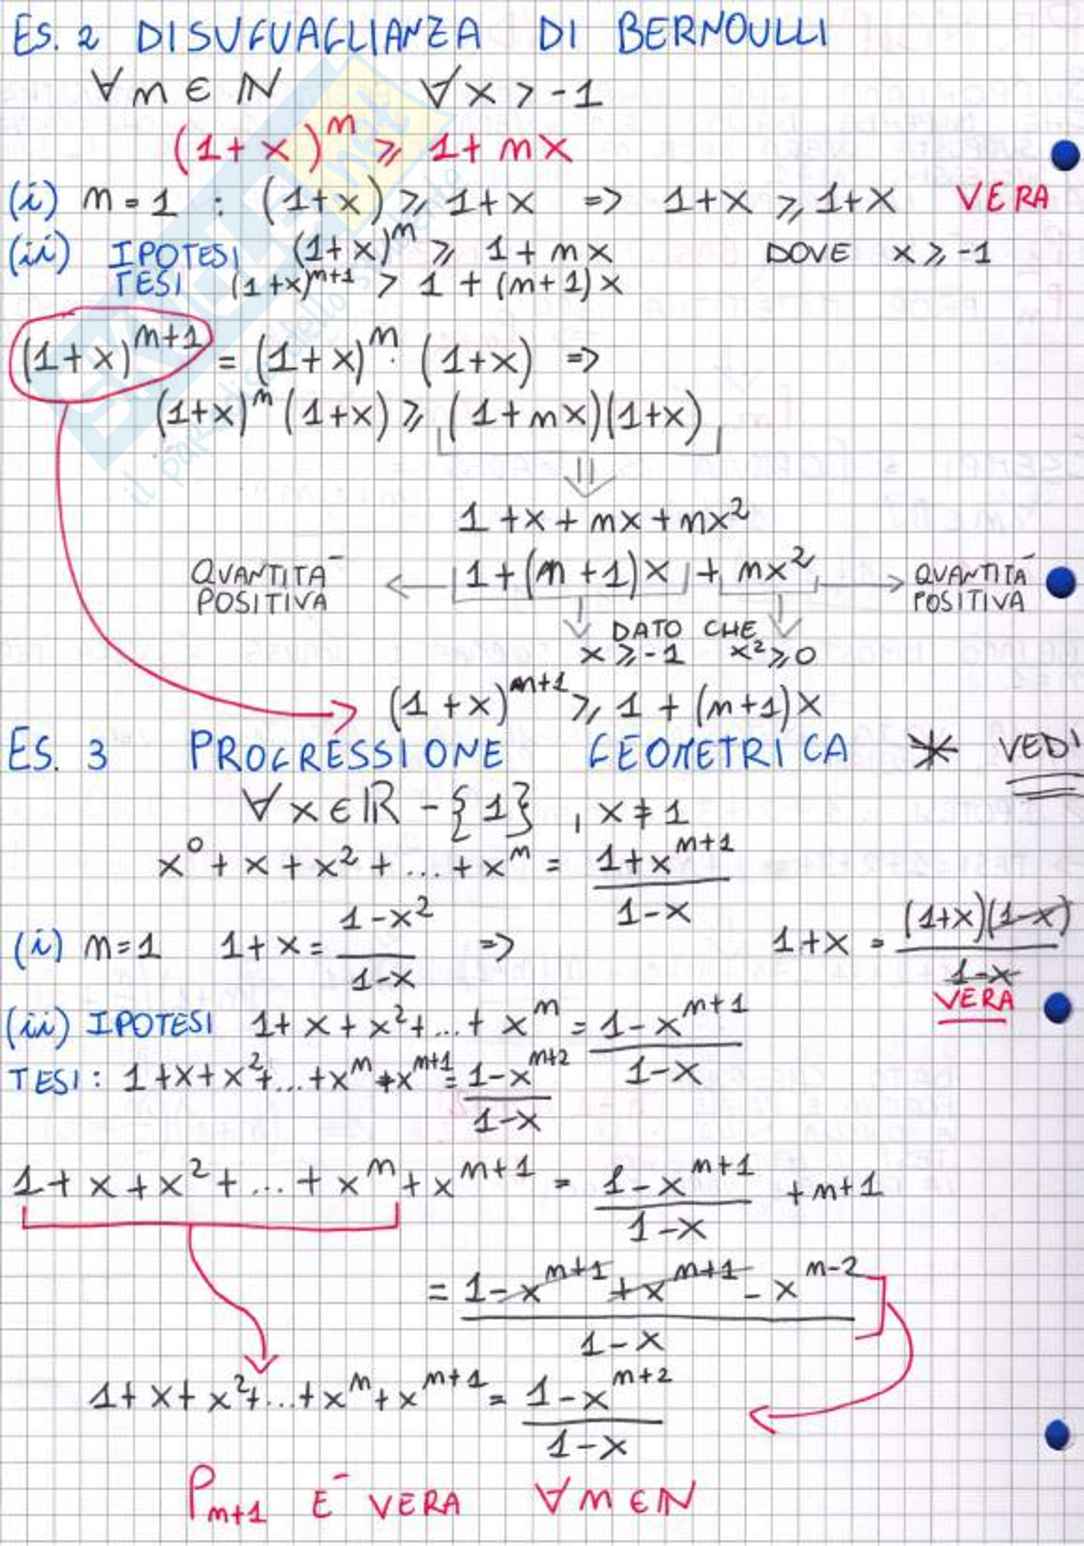 ES. 2 DISUGUAGLIANZA DI BERNOULLI
∀ n ∈ ℕ ∀ x > -1
(1+x)^n ≥ 1+nx
(i) n=1 : (1+x) ≥ 1+x => 1+x ≥ 1+x VERA
(ii) IPOTESI (1+x)^n ≥ 1+nx DOVE x ≥ -1
TESI (1+x)^{n+1} > 1+(n+1)x
(1+x)^{n+1} = (1+x)^n · (1+x) =>
(1+x)^n (1+x) ≥ (1+nx)(1+x)
⇓
1+x+nx+nx²
QUANTITÀ POSITIVA ← 1+(n+1)x + nx² → QUANTITÀ POSITIVA
DATO CHE
x ≥ -1 x² ≥ 0
(1+x)^{n+1} ≥ 1+(n+1)x
ES. 3 PROGRESSIONE GEOMETRICA * VEDI
∀ x ∈ ℝ - {1} , x ≠ 1
x⁰ + x + x² + ... + x^n = (1+x^{n+1})/(1-x)
(i) n=1 1+x = (1-x²)/(1-x) => 1+x = (1+x)(1-x)/(1-x)
VERA
(ii) IPOTESI 1+x+x²+...+x^n = (1-x^{n+1})/(1-x)
TESI: 1+x+x²+...+x^n+x^{n+1} = (1-x^{n+2})/(1-x)
1+x+x²+...+x^n+x^{n+1} = (1-x^{n+1})/(1-x) + n+1
= (1-x^{n+1}+x^{n+1}-x^{n-2})/(1-x)
1+x+x²+...+x^n+x^{n+1} = (1-x^{n+2})/(1-x)
P_{n+1} È VERA ∀ n ∈ ℕ